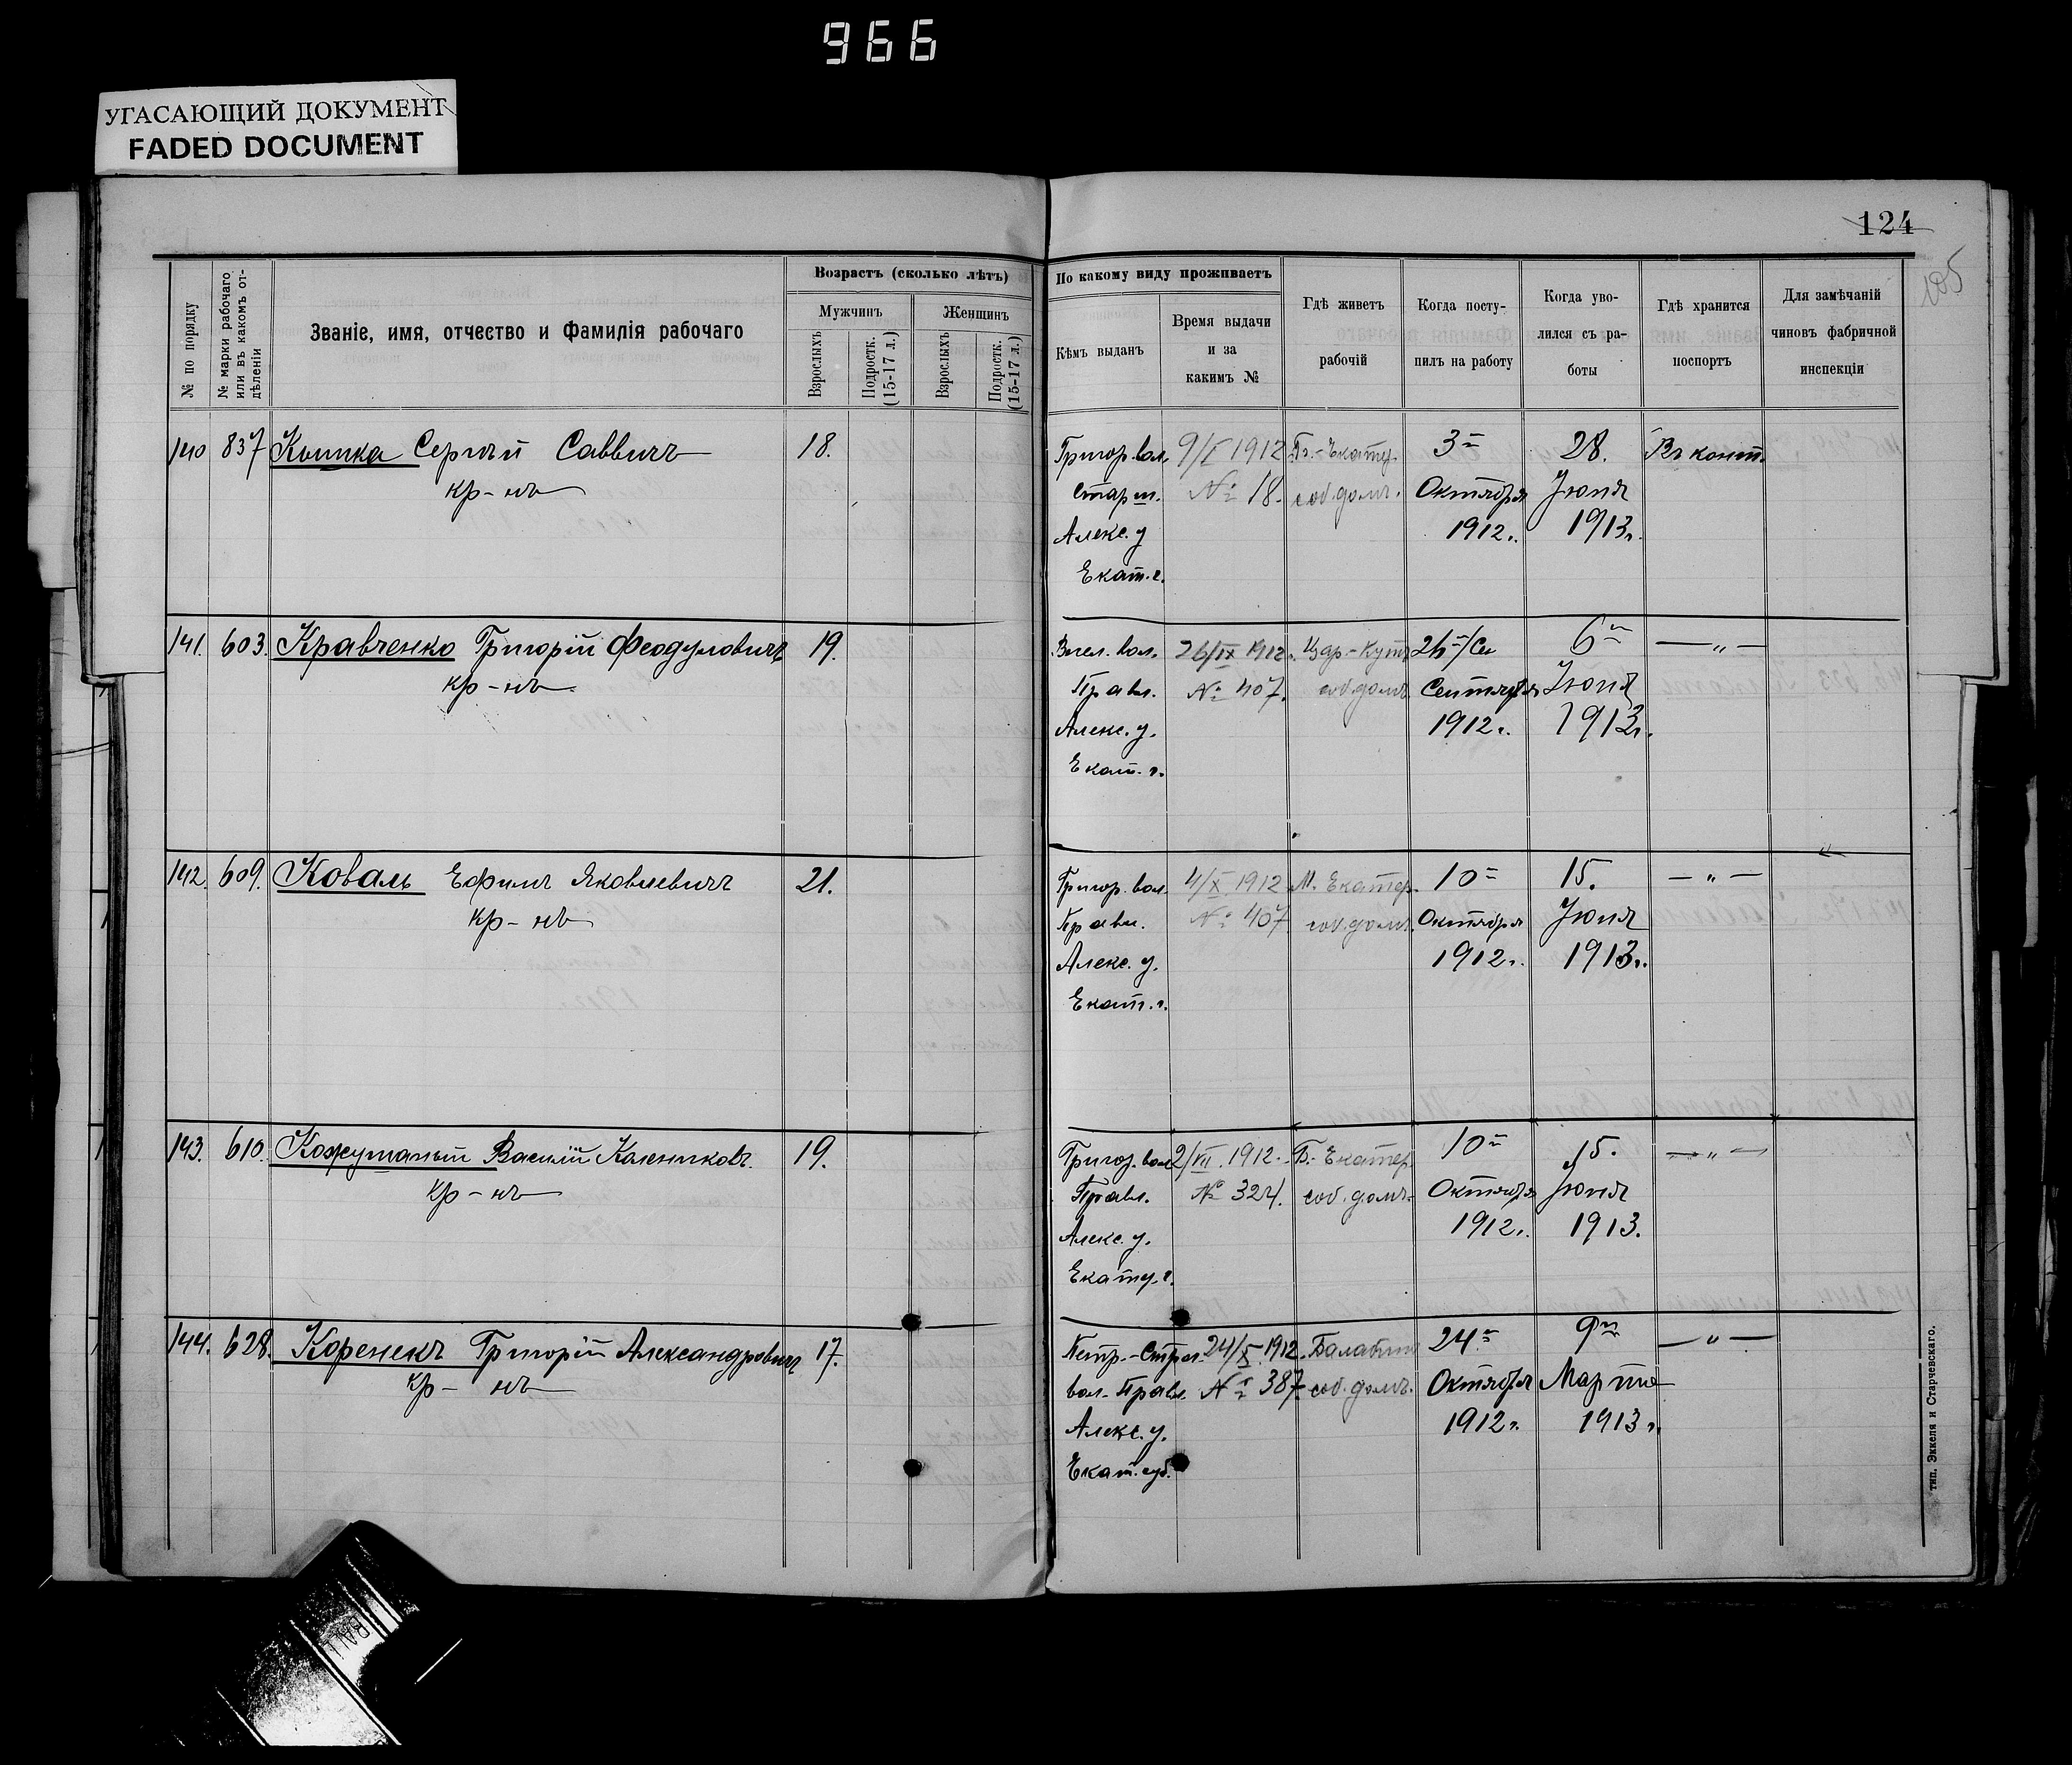 966
УГАСАЮЩИЙ ДОКУМЕНТ
FADED DOCUMENT
124
105
№ по порядку
№ марки рабочаго или въ какомъ от-дѣленіи
Званіе, имя, отчество и фамилія рабочаго
Возрастъ (сколько лѣтъ)
Мужчинъ
Женщинъ
Взрослыхъ
Подростк. (15-17 л.)
Взрослыхъ
Подростк. (15-17 л.)
По какому виду проживаетъ
Кѣмъ выданъ
Время выдачи
и за
какимъ №
Гдѣ живетъ
рабочій
Когда посту-
пилъ на работу
Когда уво-
лился съ ра-
боты
Гдѣ хранится
поспортъ
Для замѣчаній
чиновъ фабричной
инспекціи
140 837 Кышка Сергѣй Саввичъ 18.
кр-нъ
Григор. вол. 9/I 1912 Б.-Екату 3- 28. Въ конт.
Старш. № 18. соб. домъ. Октября Іюня
Алекс. у 1912 г. 1913 г.
Екат. г.
141. 603. Кравченко Григорій Феодуловичъ 19.
кр-нъ
вол. 26/IX 1912. Цар.-Кут 26-/Се 6- —„—
Правл. № 407. соб. домъ Сентября Іюня
Алекс. у. 1912 г. 1913 г.
Екат. г.
142. 609. Коваль Ефимъ Яковлевичъ 21.
кр-нъ
Григор. вол. 4/X 1912 М. Екатер. 10- 15. —„—
Правл. № 407 соб. домъ. Октября Іюня
Алекс. у. 1912 г. 1913 г.
Екат. г.
143. 610. Кожушаный Василій Калениковъ 19.
кр-нъ
Григор. вол 2/VII. 1912. Б.-Екатер. 10- 15. —„—
Правл. № 324. соб. домъ. Октября Іюня
Алекс. у. 1912 г. 1913.
Екату. г.
144. 628. Коренекъ Григорій Александровичъ 17.
кр-нъ
Петр.-Стрел. 24/X 1912. Балабин 24- 9- —„—
вол. Правл. № 387. соб. домъ. Октября Марта
Алекс. у. 1912 г. 1913 г.
Екат. губ.
тип. Эккеля и Старчевскаго.